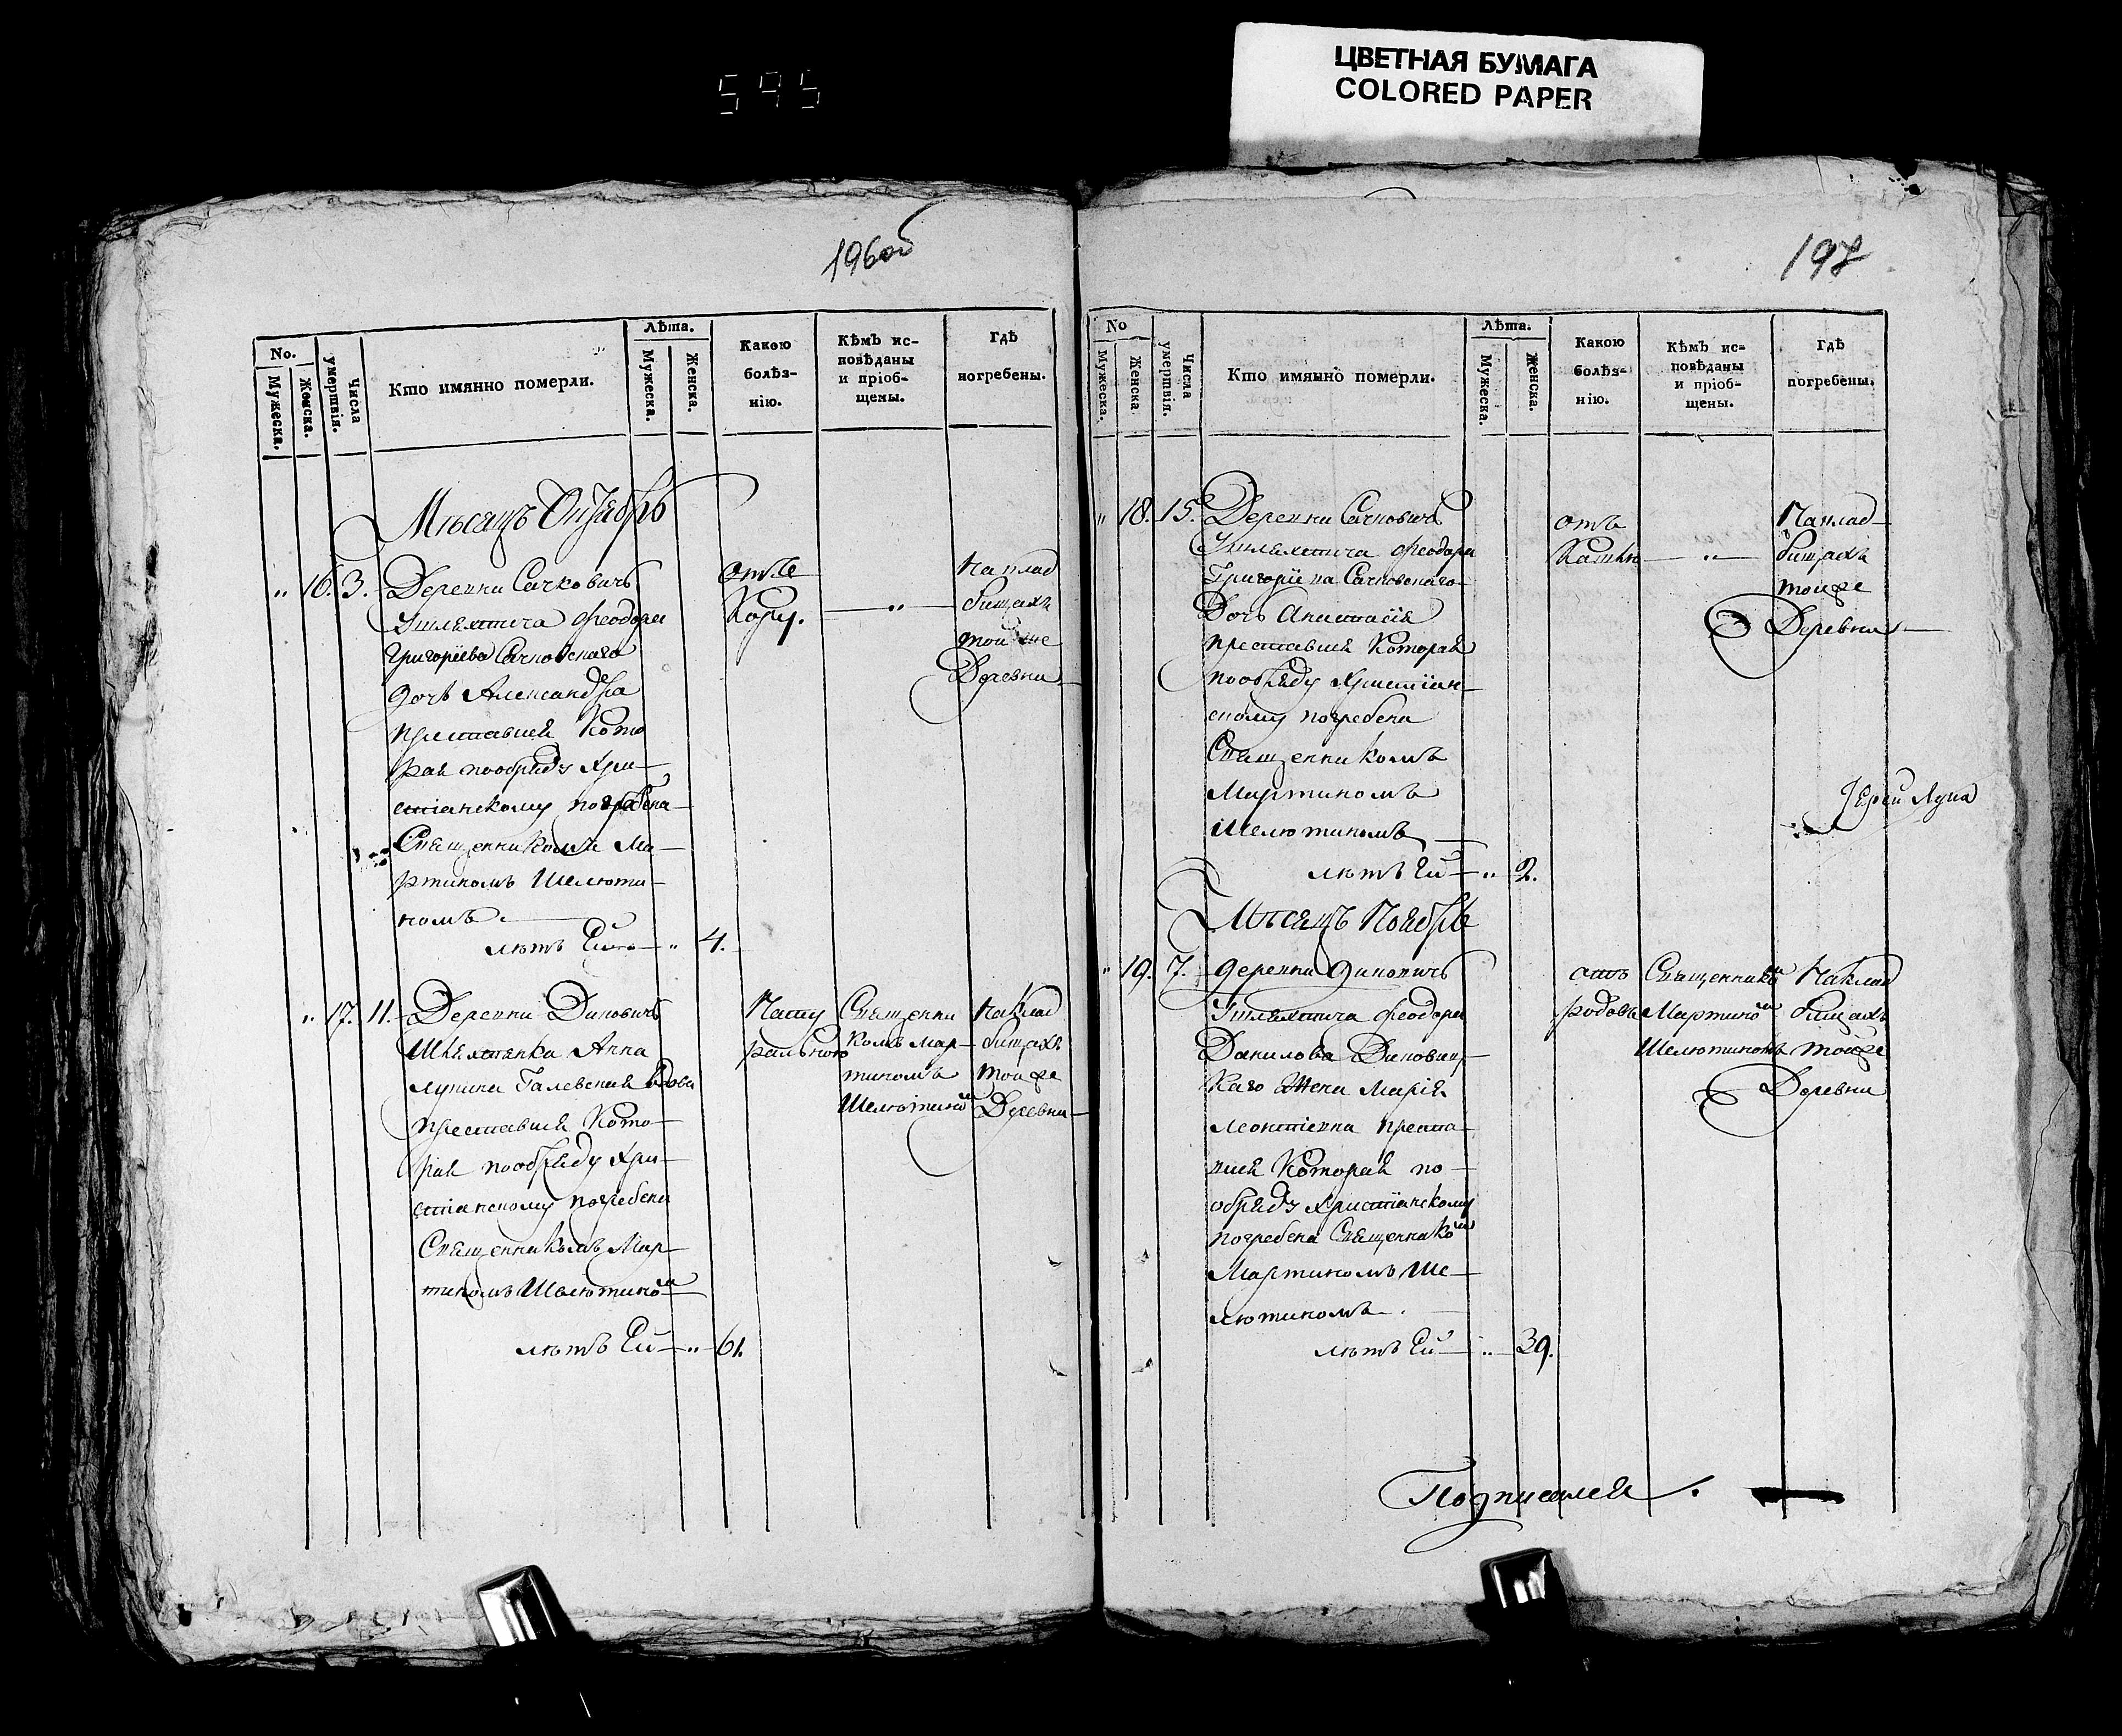 595
ЦВЕТНАЯ БУМАГА
COLORED PAPER
196об
No.
Мужеска.
Женска.
Числа умертвія.
Кто имянно померли.
Лѣта.
Мужеска.
Женска.
Какою болѣз-
нію.
Кѣмъ ис-
повѣданы
и пріоб-
щены.
Гдѣ
погребены.
Мѣсяцъ Октябрь
„ 16. 3. Деревни Сачковичъ
Шляхтича Феодора
Григоріева Сачковскаго
дочь Александра
преставися Кото
рая пообряду Хри-
стіанскому погребена
Священникомъ Ма-
ртиномъ Шелюти-
номъ.
лѣтъ Ей „ 4.
отъ
Кору.
„
На клад
бищахъ
той же
Деревни
„ 17. 11. Деревни Диновичъ
Шляхтянка Анна
Галевская вдова
преставися Кото-
рая пообряду Хри-
стіанскому погребена
Священникомъ Мар-
тиномъ Шелютиномъ
лѣтъ Ей „ 61.
Нату
ральною
Священни
комъ Мар-
тиномъ
Шелютиномъ
На Клад
бищахъ
тойже
Деревни
197
No
Мужеска.
Женска.
Числа умертвія.
Кто имянно померли.
Лѣта.
Мужеска.
Женска.
Какою
болѣз-
нію.
Кѣмъ ис-
повѣданы
и пріоб-
щены.
Гдѣ
погребены.
„ 18. 15. Деревни Сачковичъ
Шляхтича Феодора
Григоріева Сачковскаго
Дочь Анастасія
преставися Которая
пообряду Христіан-
скому погребена
Священникомъ
Мартиномъ
Шелютиномъ
лѣтъ Ей „ 2.
отъ
„
На клад
бищахъ
тойже
Деревни
Іерей Лука
Мѣсяцъ Ноябрь
„ 19. 7. деревни Диновичъ
Шляхтича Феодора
Данилова Диновиц-
каго Жена Марія
Леонтіевна преста-
вися Которая по-
обряду Христіанскому
погребена Священникомъ
Мартиномъ Ше-
лютиномъ.
лѣтъ Ей „ 39.
отъ
родовъ
Священникомъ
Мартиномъ
Шелютиномъ
На клад
бищахъ
тойже
Деревни
Подписался.